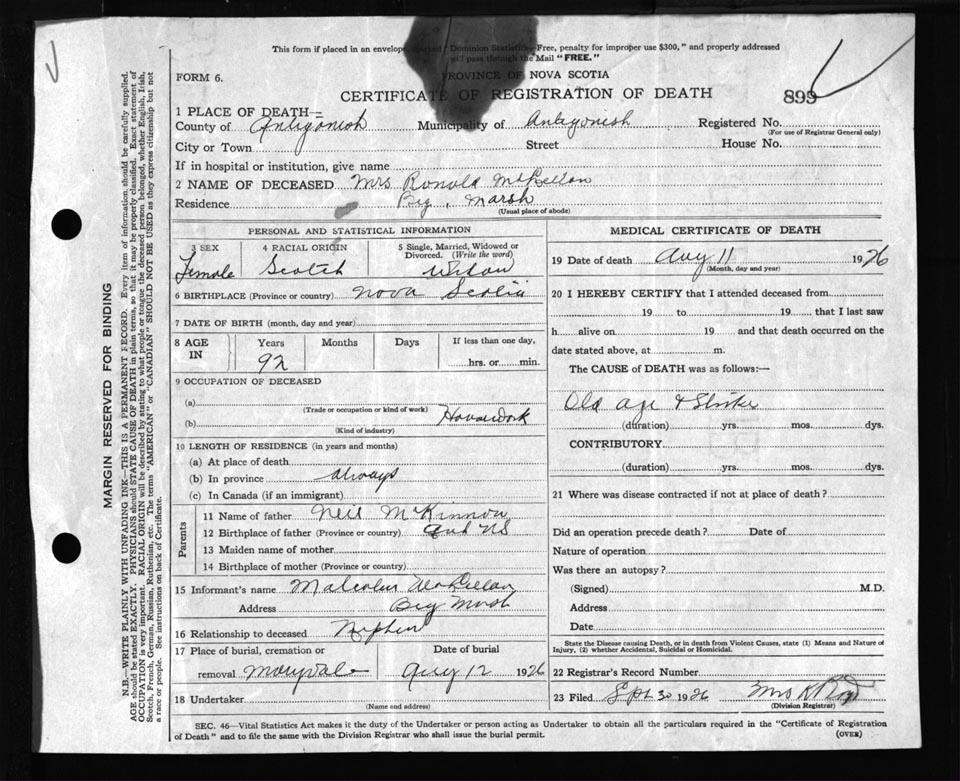 This form if placed in an envelope, marked "Dominion Statistics—Free, penalty for improper use $300," and properly addressed
will pass through the Mail "FREE."
FORM 6.
PROVINCE OF NOVA SCOTIA
CERTIFICATE OF REGISTRATION OF DEATH
899
1 PLACE OF DEATH—
County of Antigonish Municipality of Antigonish Registered No.
(For use of Registrar General only)
City or Town Street House No.
If in hospital or institution, give name
2 NAME OF DECEASED Mrs Ronald McLellan
Residence Big Marsh
(Usual place of abode)
PERSONAL AND STATISTICAL INFORMATION
3 SEX 4 RACIAL ORIGIN 5 Single, Married, Widowed or Divorced. (Write the word)
Female Scotch Widow
6 BIRTHPLACE (Province or country) Nova Scotia
7 DATE OF BIRTH (month, day and year)
8 AGE IN Years Months Days If less than one day,
92 hrs. or min.
9 OCCUPATION OF DECEASED
(a)
(Trade or occupation or kind of work)
(b) Housework
(Kind of industry)
10 LENGTH OF RESIDENCE (in years and months)
(a) At place of death
(b) In province always
(c) In Canada (if an immigrant)
Parents
11 Name of father Neil McKinnon
12 Birthplace of father (Province or country) NS
13 Maiden name of mother
14 Birthplace of mother (Province or country)
15 Informant's name Malcolm McLellan
Address Big Marsh
16 Relationship to deceased Nephew
17 Place of burial, cremation or removal Maryvale Date of burial Aug 12 1926
18 Undertaker
(Name and address)
MEDICAL CERTIFICATE OF DEATH
19 Date of death Aug 11 1926
(Month, day and year)
20 I HEREBY CERTIFY that I attended deceased from
19 to 19 that I last saw
h alive on 19 and that death occurred on the
date stated above, at m.
The CAUSE of DEATH was as follows:—
Old age & Stroke
(duration) yrs. mos. dys.
CONTRIBUTORY
(duration) yrs. mos. dys.
21 Where was disease contracted if not at place of death?
Did an operation precede death? Date of
Nature of operation
Was there an autopsy?
(Signed) M.D.
Address
Date
State the Disease causing Death, or in death from Violent Causes, state (1) Means and Nature of
Injury, (2) whether Accidental, Suicidal or Homicidal.
22 Registrar's Record Number
23 Filed Sept 30 1926 Mrs K
(Division Registrar)
SEC. 46—Vital Statistics Act makes it the duty of the Undertaker or person acting as Undertaker to obtain all the particulars required in the "Certificate of Registration
of Death" and to file the same with the Division Registrar who shall issue the burial permit.
(OVER)
MARGIN RESERVED FOR BINDING
N.B.—WRITE PLAINLY WITH UNFADING INK—THIS IS A PERMANENT RECORD. Every item of information should be carefully supplied.
AGE should be stated EXACTLY. PHYSICIANS should STATE CAUSE OF DEATH in plain terms, so that it may be properly classified. Exact statement of
OCCUPATION is very important. RACIAL ORIGIN will be described by stating to what people or tongue the deceased person belonged, whether English, Irish,
Scotch, French, German, Russian, Ruthenian, etc. The terms "AMERICAN" or "CANADIAN" SHOULD NOT BE USED as they express citizenship but not
a race or people. See instructions on back of Certificate.